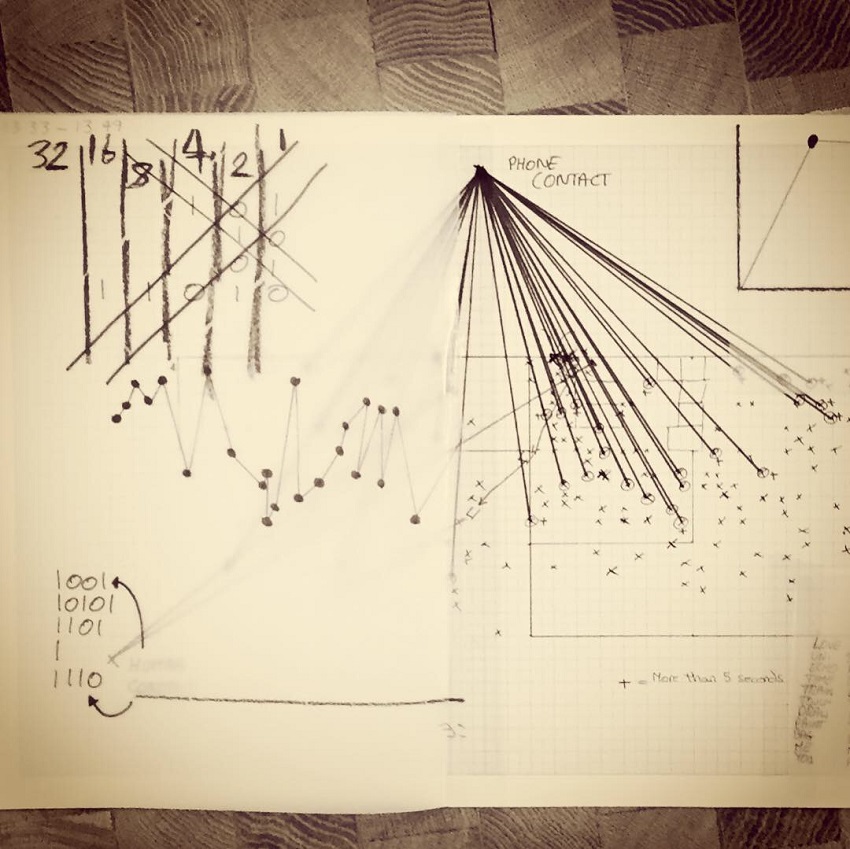 32 16 8 4 2 1
1 0 1
1 0
0 1
1 1 0 1 0
1001
10101
1101
1
1110
PHONE
CONTACT
+ = More than 5 seconds